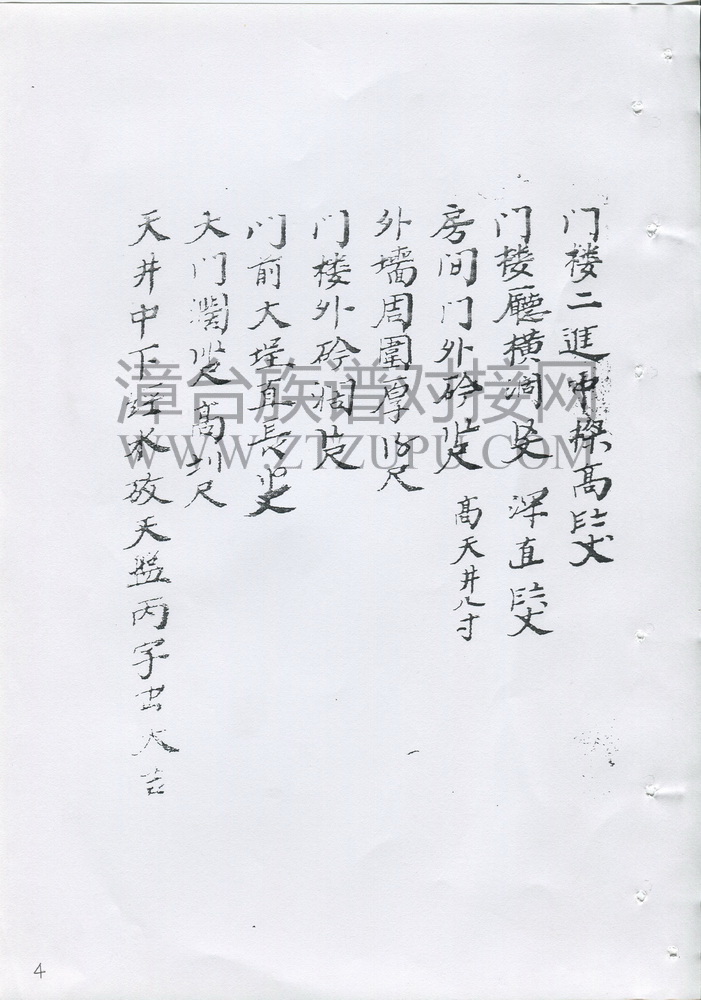 门楼二進中樑高丈
门楼廳横阔丈 深直丈
房间门外砛尺 高天井八寸
外墙周圍厚尺
门楼外砛阔尺
门前大埕直長丈
大门濶尺高尺
天井中下水放天盤丙字出大吉
漳台族谱对接网
WWW.ZTZUPU.COM
4